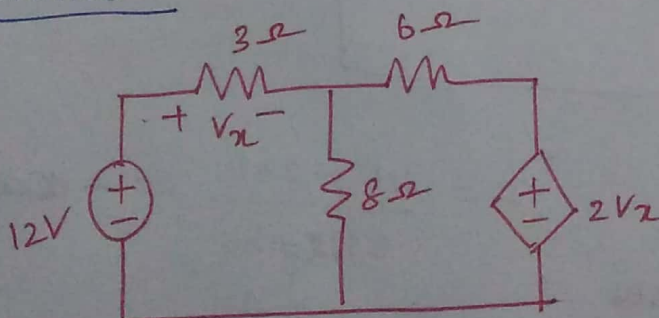 3Ω 6Ω
+ Vx −
+
−
12V
8Ω
+
−
2Vx